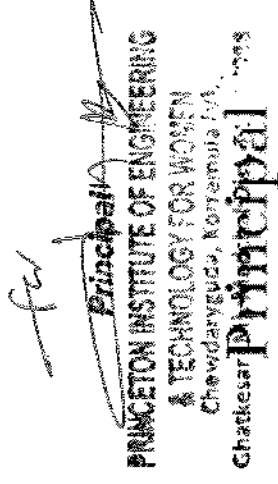 for
Principal
PRINCETON INSTITUTE OF ENGINEERING
& TECHNOLOGY FOR WOMEN
Chowdaryguda, Korremula
Ghatkesar
Principal